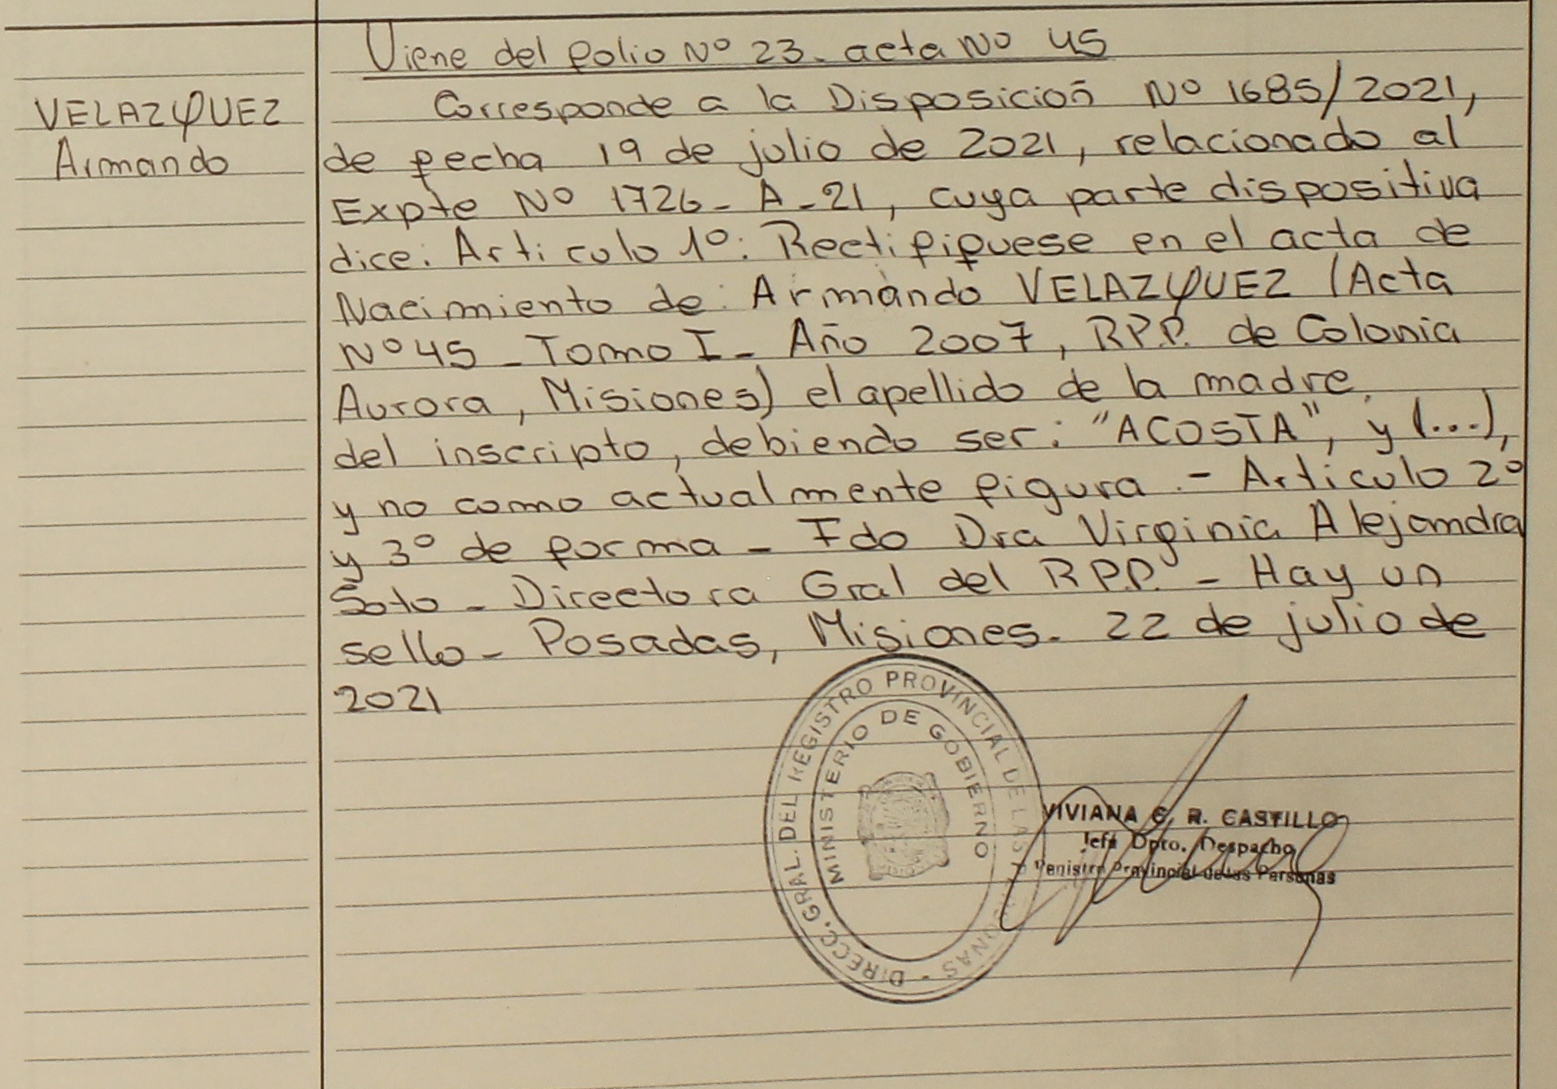 Viene del folio Nº 23. acta Nº 45
VELAZQUEZ
Armando
Corresponde a la Disposición Nº 1685/2021,
de fecha 19 de julio de 2021, relacionado al
Expte Nº 1726-A-21, cuya parte dispositiva
dice: Articulo 1º: Rectifiquese en el acta de
Nacimiento de: Armando VELAZQUEZ (Acta
Nº 45 - Tomo I - Año 2007, R.P.P. de Colonia
Aurora, Misiones) el apellido de la madre
del inscripto, debiendo ser: "ACOSTA", y (...),
y no como actualmente figura.- Articulo 2º
y 3º de forma - Fdo Dra Virginia Alejandra
Soto - Directora Gral del R.P.P. - Hay un
sello - Posadas, Misiones. 22 de julio de
2021
DIRECC. GRAL. DEL REGISTRO PROVINCIAL DE LAS PERSONAS -
MINISTERIO DE GOBIERNO
VIVIANA C. R. CASTILLO
Jefa Dpto. Despacho
Registro Provincial de las Personas